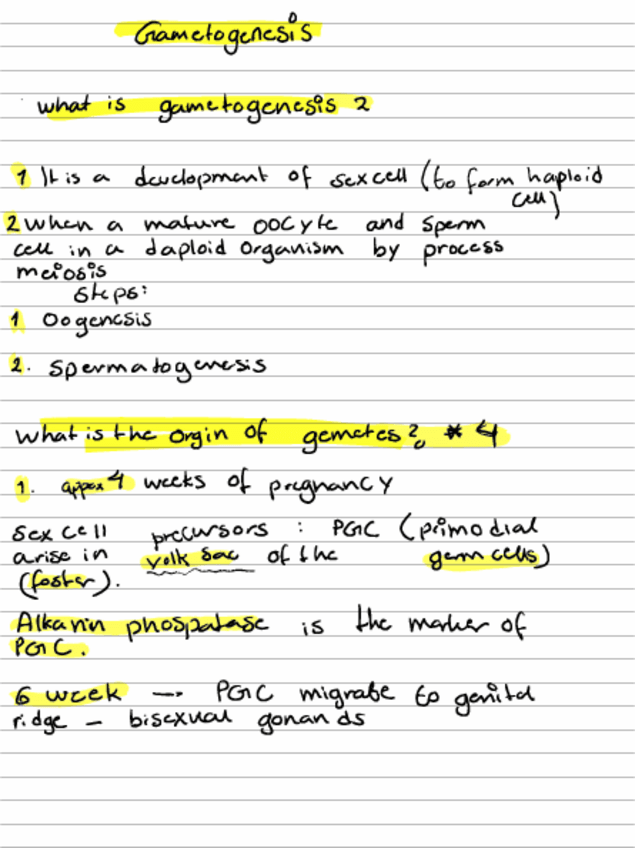 Gametogenesis
what is gametogenesis ?
1 It is a development of sex cell (to form haploid
cell)
2 When a mature oocyte and sperm
cell in a daploid organism by process
meiosis
Steps:
1 Oogenesis
2. Spermatogenesis
What is the orgin of gemetes ? * 4
1. appox 4 weeks of pregnancy
Sex cell precursors : PGC (primodial
arise in yolk sac of the germ cells)
(foster).
Alkanin phospatase is the marker of
PGC.
6 week → PGC migrate to genital
ridge - bisexual gonands